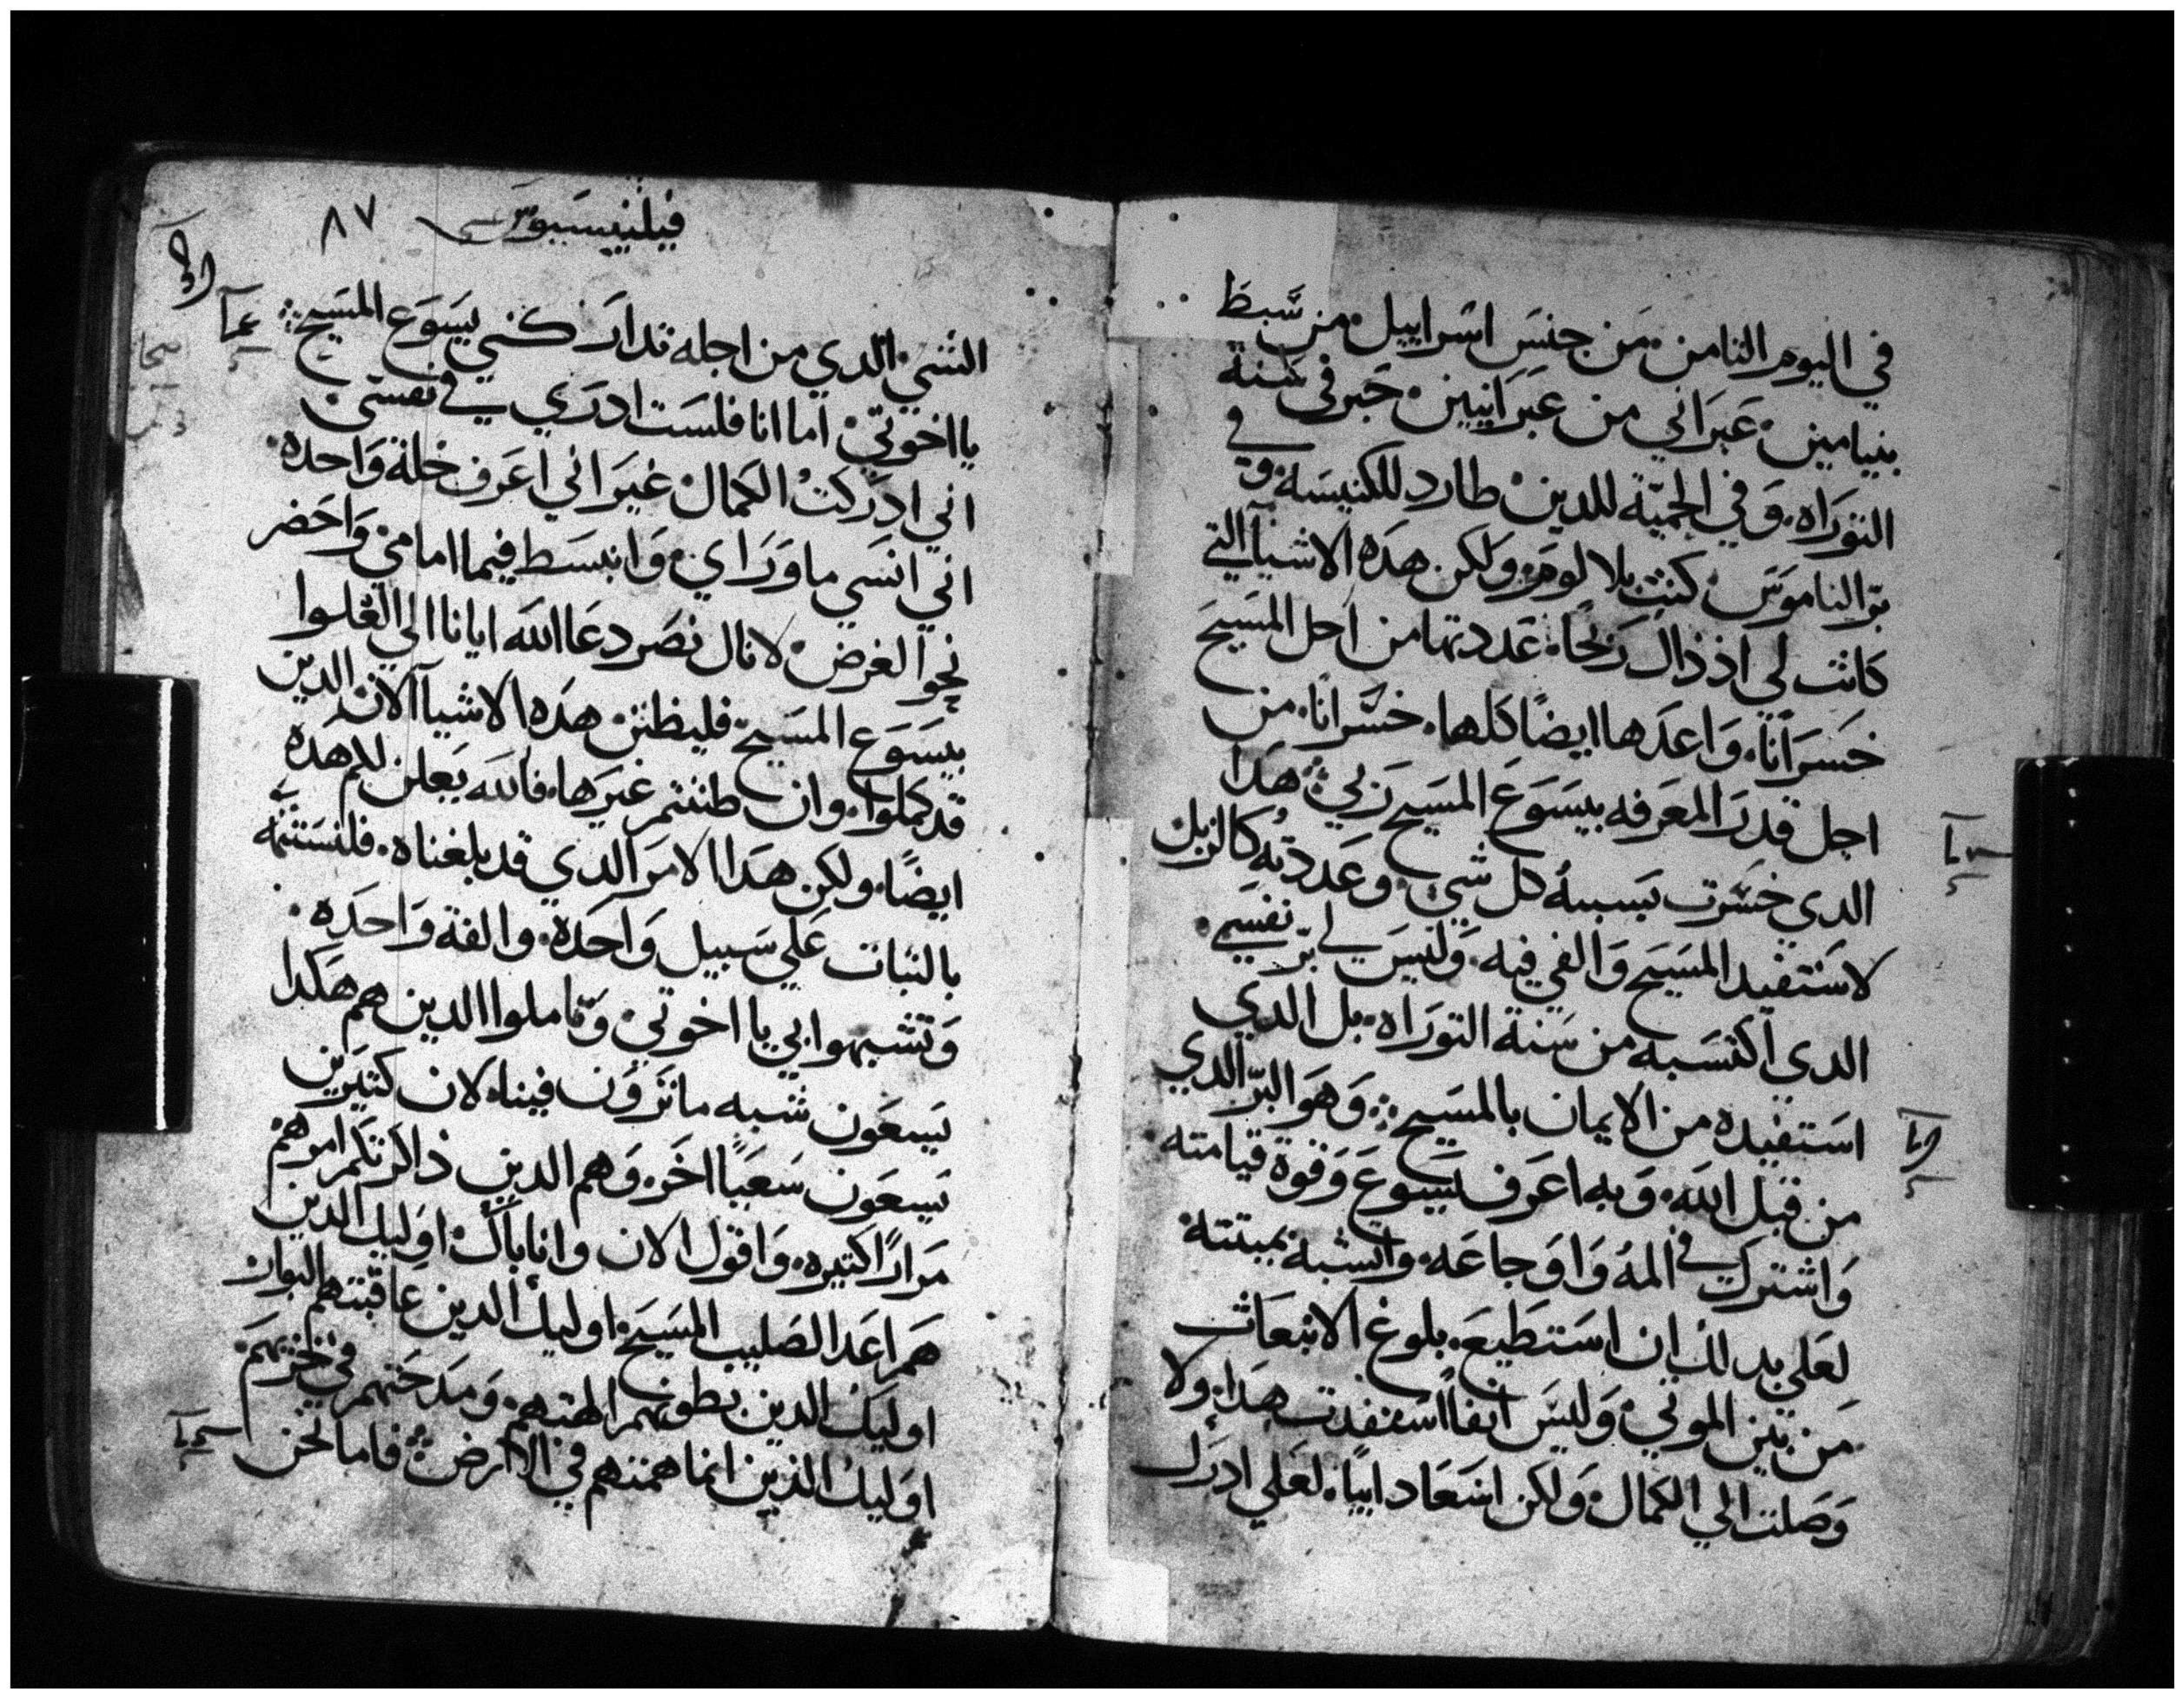 في اليوم الثامن. من جنس اسراييل. من سبط
بنيامين. عبراني من عبرانيين. حبر في سنة
التوراه. وفي الحمية للدين. طارد للكنيسه. وفي
بر الناموس. كنت بلا لوم. ولكن هده الاشيا التي
كانت لي اذ ذال ربحا. عددتها من اجل المسيح
خسرانا. واعدها ايضا كلها. خسرانا. من
اجل قدر المعرفه بيسوع المسيح ربي. هدا
الدي خسرت بسببه كل شي. وعددته كالزبل
لاستفيد المسيح والفي فيه. وليس لي بر نفسي.
الدي اكتسبه من سنة التوراه. بل الدي
استفيده من الايمان بالمسيح. وهو البر الدي
من قبل الله. وبه اعرف يسوع وقوة قيامته.
واشترك في المه واوجاعه. واتشبه بميتته
لعلي بدلك ان استطيع. بلوغ الانبعاث
من بين الموتي. وليس انفا استفدت هدا. ولا
وصلت الي الكمال. ولكن اسعا دايبا. لعلي ادرك
فيلبيسيوس ٨٧
الشي الدي من اجله تداركني يسوع المسيح
يا اخوتي. اما انا فلست ادري في نفسي.
اني ادركت الكمال. غير اني اعرف خلة واحده.
اني انسي ما وراي. وانبسط فيما امامي. واحضر
نحو الغرض. لانال نصر دعا الله ايانا الي العلوا
بيسوع المسيح. فليظنن هده الاشيا الان الدين
قد كملوا. وان ظننتم غيرها. فالله يعلن لكم هده
ايضا. ولكن هدا الامر الدي قد بلغناه. فلنستتمه
بالثبات علي سبيل واحدة. والفة واحده.
وتشبهوا بي يا اخوتي. وتاملوا الدين هم هكدا
يسعون شبه ما ترون فينا. لان كتيرين
يسعون سعيا اخر. وهم الدين ذاكرتكم امرهم
مرارا كتيره. واقول الان وانا باك. اوليك الدين
هم اعدا الصليب المسيح. اوليك الدين عاقبتهم البوار
اوليك الدين بطونهم الهتهم. ومدحتهم في خزيهم.
اوليك الذين انما همتهم في الارض. فاما نحن